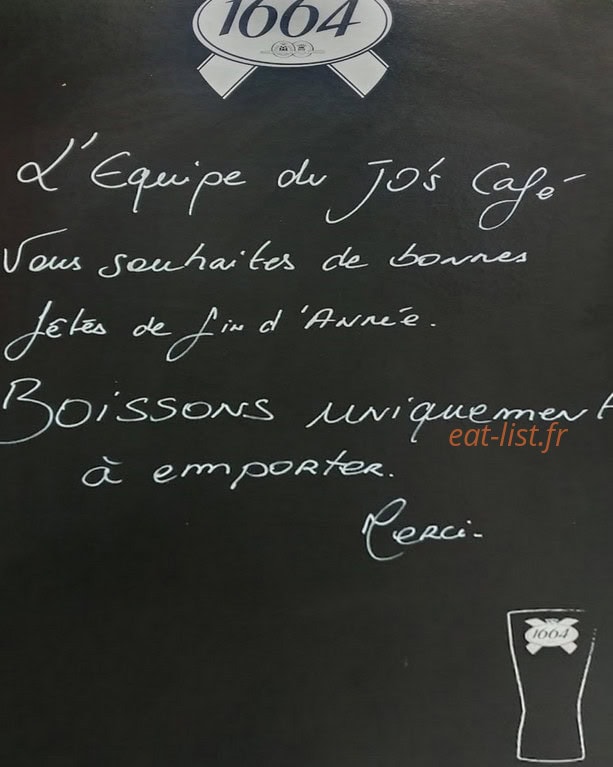 1664
L'Equipe du JO's Café
Vous souhaites de bonnes
fêtés de fin d'Année.
Boissons uniquement
eat-list.fr
à emporter.
Merci-
1664